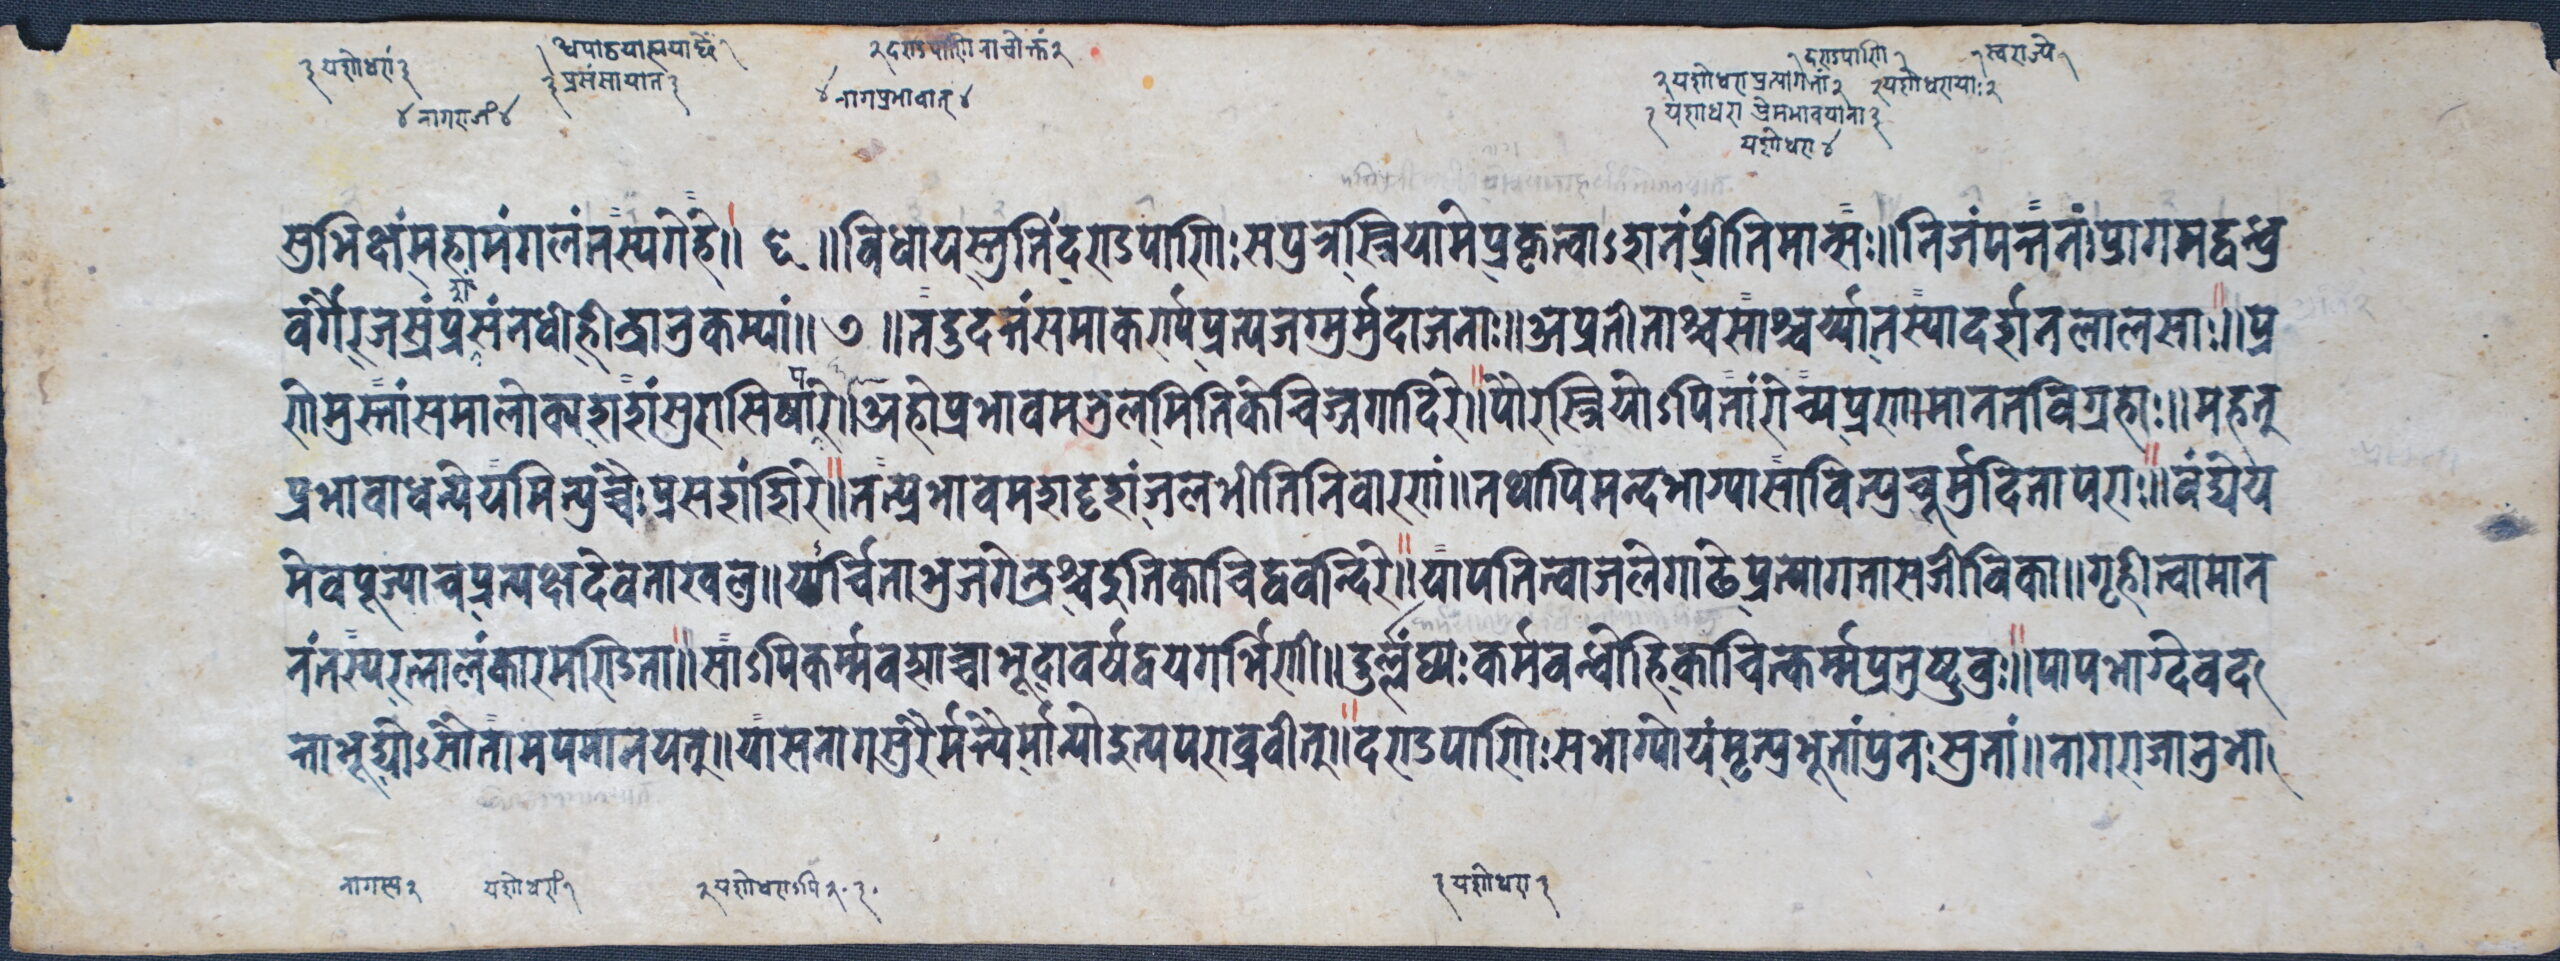 ३ यशोधरां ३
३ प्रसंसायात ३
२ दराडपाणिनाचोक्तं २
१ दराडपाणि १
१ स्वराज्ये १
२ यशोधरा प्रत्यागतां २
२ यशोधरायाः २
४ नागराजं ४
४ नागप्रभावात् ४
यशोधरा ४
सुभिक्षांमहामंगलंतस्यगेहे॥ ६ ॥विधायस्तुतिंदराडपाणिः सपुत्रस्त्रियामेप्रकृत्वाऽशनंप्रीतिमान्सः॥निजंपत्तनंप्रागमद्बन्धु
वर्गैर्जस्रंप्रसंनधीर्हीन्द्रानुकम्प्यां॥ ७ ॥तदुदन्तंसमाकरार्यप्रत्यजग्मुर्मुदाजनाः॥अप्रतीताश्चसाश्चर्य्यातस्यादर्शनलालसाः॥प्र
णेमुस्तांसमालोक्यशशंसुराशिषांरे॥अहोप्रभावमतुलमितिकेचिज्जगादिरे॥पौरस्त्रियोऽपितांरोच्यप्रणामानतविग्रहाः॥महत्
प्रभावाधन्येयमित्युच्चैःप्रसशंशिरे॥तत्प्रभावमशदृशंजलभीतिनिवारणं॥तथापिमन्दभाग्यासावित्यूचुर्मुदितापराः॥वंद्येय
मेवपूज्याचप्रत्यक्षदेवताखलु॥ र्चिताभुजगेन्द्रश्चइतिकाचिद्ववन्दिरे॥यापतित्वाजलेगाढेप्रत्यागतासजीविका॥गृहीत्वामान
नंतस्यरत्नालंकारमणिडता॥साऽपिकर्म्मवसाच्चाभूदावर्षद्वयगर्भिणी॥दुर्ल्लंघ्यःकर्मबन्धोहिकाचित्कर्म्मप्रतुष्टुवुः॥पापभाग्देवद
त्ताभूद्योऽसौतामपमानयत्॥यासनागसुरैर्मन्यैर्मान्योइत्यपराब्रवीत्॥दराडपाणिः सभाग्योयंमृत्प्रभूतांपुनःसुतां॥नागराजानुभा
नागस्य २
यशोधरां १
२ यशोधराऽपि २ . ३ .
३ यशोधरा ३